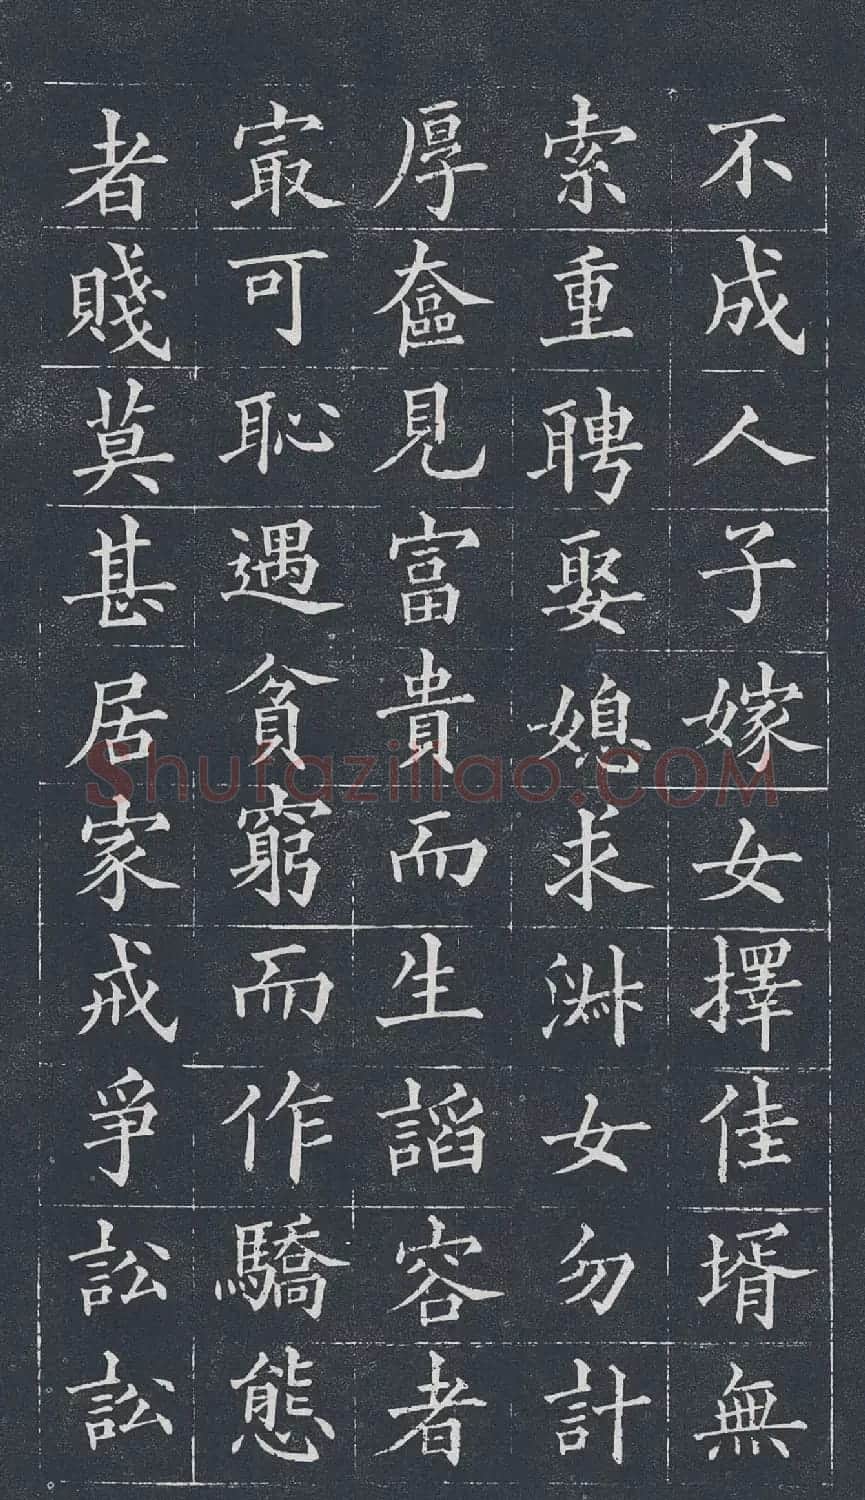 不成人子嫁女擇佳壻無
索重聘娶媳求淑女勿計
厚奩見富貴而生諂容者
㝡可恥遇貧窮而作驕態
者賤莫甚居家戒爭訟訟
Shufaziliao.COM